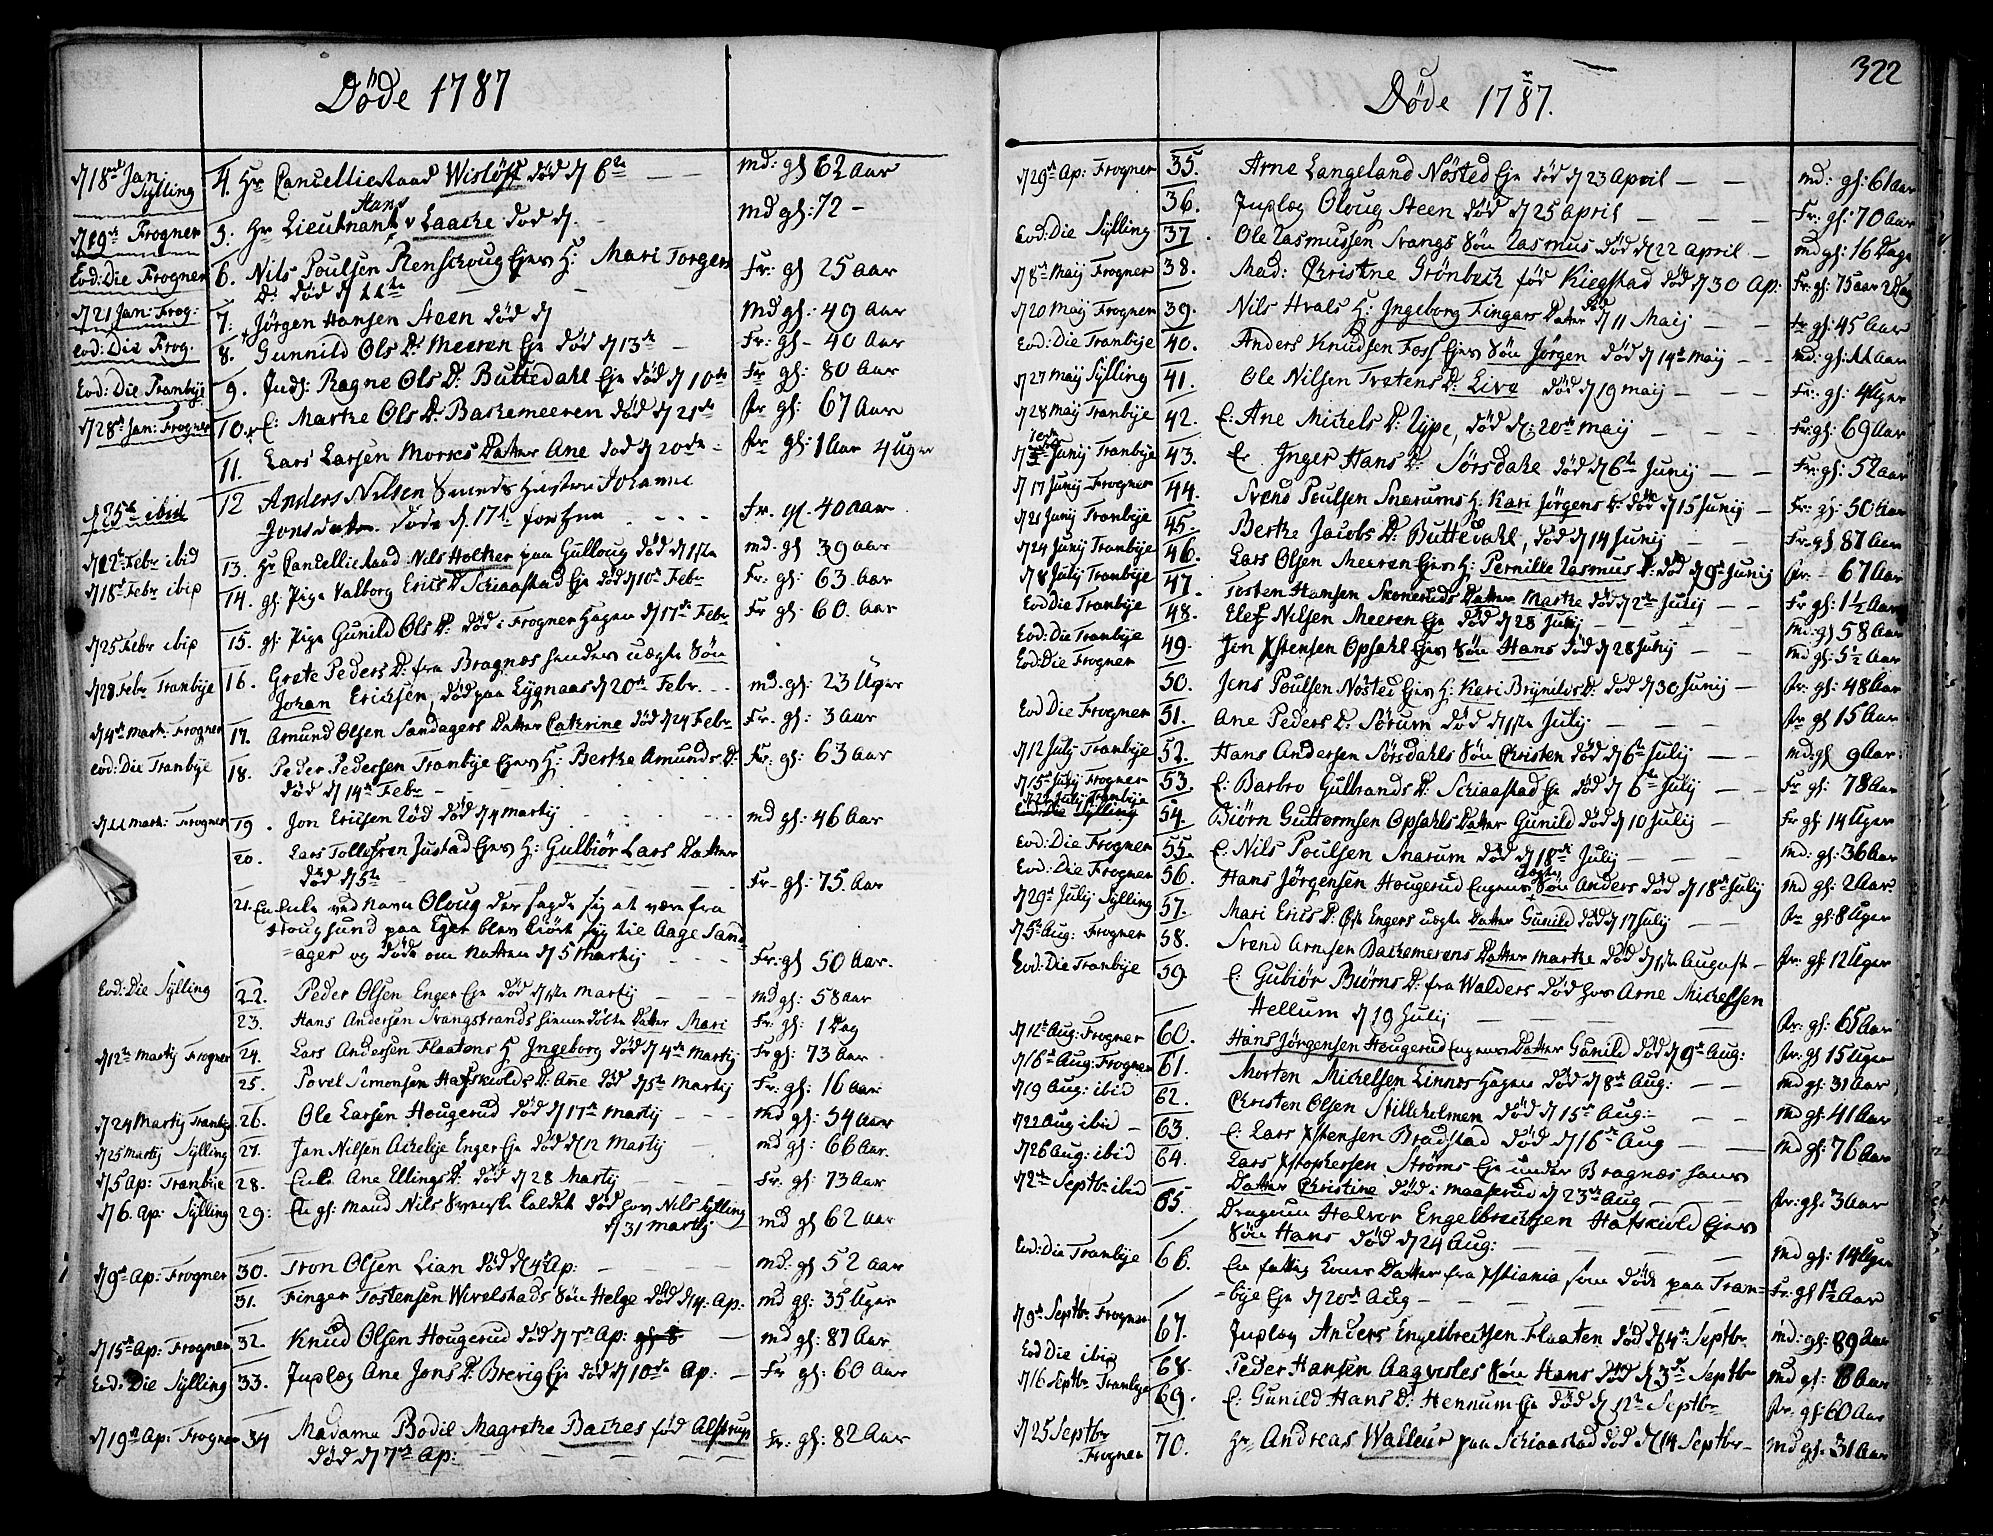 Døde 1787
d 18de Jan: Sylling 4. Hr Cancellieraad Wisløff død d 6te md: gl 62 Aar
d 19de Frogner 5. Hr Lieutnant Hans v Laacke død d. md gl: 72 -
Eod: Die Frogner 6. Nils Poulsen Renskoug Ejers H: Mari Torgers Fr: gl 25 Aar
D: død d 11te
d 21 Jan: Frog: 7. Jørgen Hansen Steen død d md gl: 49 Aar
eod: Die Frog. 8. Gunnild Ols D: Meeren Eje død d 13de Fr: gl - 40 Aar
Eod: Die Tranbye 9. Inds: Ragne Ols D: Buttedahl Eje død d 10de Fr gl: 80 Aar
d 28de Jan: Frogner 10. E: Marthe Ols D: Baskemeeren død d 21de Fr gl: 67 Aar
11. Lars Larsen Morks Datter Ane død d 20de - Fr gl: 1 Aar 4 Uger
d 25de ibid 12 Anders Nilsen Smeds Hustru Johanne
Jonsdatter. døde d. 17de Fr. gl. 40 aar
d 12te Febr ibid 13. Hr Cancellieraad Nils Holter paa Gulloug død d 1ste md. gl 39 aar
d 18de Febr ibid 14. gl: Pige Valborg Erics D: Schiaastad Eje død d 10de Febr Fr. gl: 63 Aar
d 25 Febr ibid 15. gl: Pige Gunild Ols D: død i Frogner Hagen d 17de Febr Fr gl: 60. Aar
d 28 Febr Tranbye 16. Grete Peders D: fra Bragnæs hendes uægte Søn
Johan Erichsen, død paa Lygnaas d 20de Febr. md. gl: 23 Uger
d 4de Mart: Frogner 17. Amund Olsen Sandagers Datter Cathrine død d 24 Febr Fr. gl: 3 Aar
eod: Die Tranbye 18. Peder Pedersen Tranbye Ejers H: Berthe Amunds D: Fr: gl: 63 Aar
død d 14de Febr
d 11 Mart: Frogner 19. Jon Ericsen Rød død d 4 Martij md gl: 46 Aar
20. Lars Tollefsen Justad Ejers H: Gulbiør Lars Datter
død d 5te Fr - gl: 75 Aar
21. En Enke ved Navn Oloug der sagde sig at være fra
Hougsund paa Eger blev kiørt syg til Aage Sand
=ager og døde om Natten d 5 Martij Fr: gl 50 Aar.
Eod: Die Sylling 22. Peder Olsen Enger Eje død d 1ste Martij md gl: 58 Aar
23. Hans Andersen Svangstrands hiemmedøbte Datter Mari Fr: gl: 1 Dag
d 12te Martij Frogner 24. Lars Andersen Flaatens H: Ingeborg død d 4de Martij Fr gl: 73 Aar
25. Povel Simonsen Hafskiolds D: Anne død d 5te Martij Fr: gl: 16 Aar
d 24 Martij Tranbye 26. Ole Larsen Hougerud død d 17de Martij md gl: 54 Aar
d 25 Martij Sylling 27. Jan Nilsen Ackebye Enger Eje død d 12 Martij md gl: 66 Aar
d 5 Ap: Tranbye 28. Enke Ane Ellings D: død d 28 Martij Fr. gl: 73 Aar
d 6. Ap: Sylling 29. En gl: Mand Nils Svenske kaldet død hos Nils Sylling md gl 62 Aar
d 31 Martij
d 9de Ap: Frogner 30. Tron Olsen Lian død d 4de Ap: md: gl 52 Aar
31. Finger Tostensen Wivelstads Søn Helge død d 4. Ap. md gl: 35 Uger
d 15de Ap: Frogner 32. Knud Olsen Hougerud død d 7de Ap: md gl: 87 Aar
Eod: Die Sylling 33. Indlæg Ane Jons D: Brevig Eje død d 10de Ap: Fr gl: 60 Aar
d 19de Ap: Frogner 34 Madame Bodil Magrethe Backes fød Alstrup Fr: gl: 82 Aar
død d 7de Ap:
322
Døde 1787.
d 29de Ap: Frogner 35. Arne Langeland Nøsted Eje død d 23 April md: gl: 61 Aar
36. Indlæg Oloug Steen død d 25 April Fr: gl: 70 Aar
Eod: Die Sylling 37. Ole Rasmussen Svangs Søn Rasmus død d 22 April md gl: 16 Dage
d 8de Maij Frogner 38. Mad: Christine Grønbech fød Kiegstad død d 30 Ap: Fr: gl: 75 aar
d 20 Maij Frogner 39. Nils Hvals H: Ingeborg Fingars Datter død d 11 Maij Fr gl: 45 Aar
Eod: Die Tranbije 40. Anders Knudsen Foss Ejers Søn Jørgen død d 14de Maij md: gl: 11 Aar
d 27 Maij Sylling 41. Ole Nilsen Tvetens D: Live død d 19 Maij Fr: gl: 4 Uger
d 28 Maij Tranbije 42. E: Ane Michels D: Rype, død d: 20de Maij Fr: gl: 69 Aar
d 10de Junij Tranbije 43. E: Inger Hans D: Sørsdahl død d 6te Junij Fr: gl: 52 aar
d 17 Junij Frogner 44. Svend Poulsen Snarums H: Kari Jørgens D: død d 15 Junij Fr: gl: 50 Aar
d 21 Junij Tranbije 45. Berthe Jacobs D: Buttedahl, død d 14 Junij Fr: gl 87 Aar
d 24 Junij Tranbije 46. Lars Olsen Meeren Ejers H: Pernille Rasmus D: død d 9de Junij Fr - 67 Aar
d 8 Julij Tranbije 47. Tosten Hansen Skoneruds Datter Marthe død d 2de Julij Fr gl: 1½ Aar
Eod Die Tranbije 48. Elef Nilsen Meeren Eje død d 28 Junij md: gl 58 Aar
Eod: Die Tranbije 49. Jon Xstensen Opsahl Ejers Søn Hans død d 28 Junij md gl: 5½ Aar
Eod: Die Frogner 50. Jens Poulsen Nøsted Ejers H: Kari Brynilds D: død d 30 Junij Fr. gl: 48 Aar
Eod Die Frogner 51. Ane Peders D: Sørum død d 1ste Julij Fr gl 15 Aar
d 12 Julij Tranbije 52. Hans Andersen Sørsdahls Søn Christen død d 6te Julij md: gl 9 Aar
d 15de Julij Frogner 53. E: Barbro Gulbrands D: Schiaastad Eje død d 6te Julij Fr gl: 78 Aar
d 22 Julij Tranbije 54. Biørn Guttormsen Opsahls Datter Gunild død d 10 Julij Fr gl 14 Uger
Eod: Die Frogner 55. E: Nils Poulsen Snarum død d 18de Julij md: gl: 36 Aar
Eod: Die Frogner 56. Hans Jørgensen Hougerud Engens Søn Anders død d 18de Julij md gl: 2 Aar
d 29de Julij Sylling 57. Mari Erics D: Øste Engers uægte Datter Gunild død d 17 Julij Fr gl: 8 Uger
d 5te Aug: Frogner 58. Svend Arnesen Backemerens Datter Marthe død d 1ste August Fr: gl 12 Uger
Eod: Die Tranbije 59. E: Gubiør Biørns D: fra Walders død hos Arne Michelsen
Hellum d 19 Julij Fr: gl: 65 Aar
d 12te Aug: Frogner 60. Hans Jørgensen Hougerud Engens Datter Gunild død d 9de Aug: Fr: gl 15 Uger
d 16de Aug: Frogner 61. Morten Michelsen Linnes Hagen død d 8de Aug: md gl: 31 Aar
d 19 Aug: ibid 62. Christen Olsen Nilleholmen død d 15de Aug: md gl: 41 Aar
d 22 Aug ibid 63. E: Lars Xstensen Bradstad død d 16de Aug md gl: 76 Aar
d 26 Aug: ibid 64. Lars Xstophersen Strøms Eje under Bragnæs hans
Datter Christine død i Maaserud d 23de Aug Fr: gl: 3 Aar
d 2den Septbr ibid 65. Dragoun Helvor Engelbrechtsen Hafskiold Ejers
Søn Hans død d 24 Aug: md gl: 14 Uger
Eod: Die Tranbije 66. En fattig Kones Datter fra Xstiania som døde paa Tran=
=bije Eje d 20de Aug Fr: gl 1½ Aar
d 9de Septbr Frogner 67. Indlæg Anders Engelbrechtsen Flaaten død d 4de Septbr md: gl: 89 Aar
Eod Die ibid 68. Peder Hansen Aagvoldes Søn Hans død d 3de Septbr md gl: 8 Aar
d 16 Septbr Tranbije 69. E: Gunild Hans D: Hennum Eje død d 12te Septbr Fr. gl: 60 Aar
d 25 Septbr Frogner 70. Hr Andreas Walleur paa Schiaastad død d 14 Septbr md gl: 31 Aar